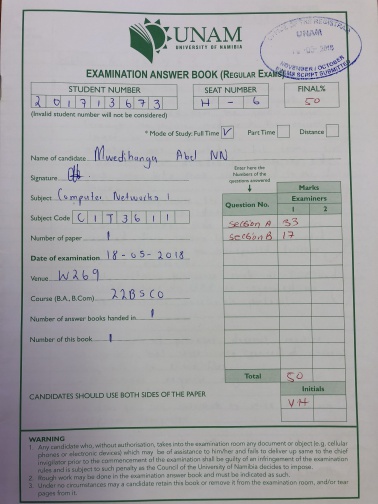 UNAM
UNIVERSITY OF NAMIBIA
OFFICE OF THE REGISTRAR
UNAM
2018
NOVEMBER / OCTOBER
EXAM SCRIPT SUBMITTED
EXAMINATION ANSWER BOOK (REGULAR EXAMS)
STUDENT NUMBER
SEAT NUMBER
FINAL%
201713673
H - 6
50
(Invalid student number will not be considered)
* Mode of Study: Full Time ✓ Part Time Distance
Name of candidate Abel NN
Signature
Subject Computer Networks 1
Subject Code CIT3611
Number of paper 1
Date of examination 18-05-2018
Venue W269
Course (B.A., B.Com) 22BSCO
Number of answer books handed in 1
Number of this book 1
Enter here the Numbers of the questions answered
Marks
Question No.
Examiners
1 2
Section A 33
Section B 17
Total 50
Initials
VH
CANDIDATES SHOULD USE BOTH SIDES OF THE PAPER
WARNING
1. Any candidate who, without authorisation, takes into the examination room any document or object (e.g. cellular
phones or electronic devices) which may be of assistance to him/her and fails to deliver up same to the chief
invigilator prior to the commencement of the examination shall be guilty of an infringement of the examination
rules and is subject to such penalty as the Council of the University of Namibia decides to impose.
2. Rough work may be done in the examination answer book and must be indicated as such.
3. Under no circumstances may a candidate retain this book or remove it from the examination room, and/or tear
pages from it.